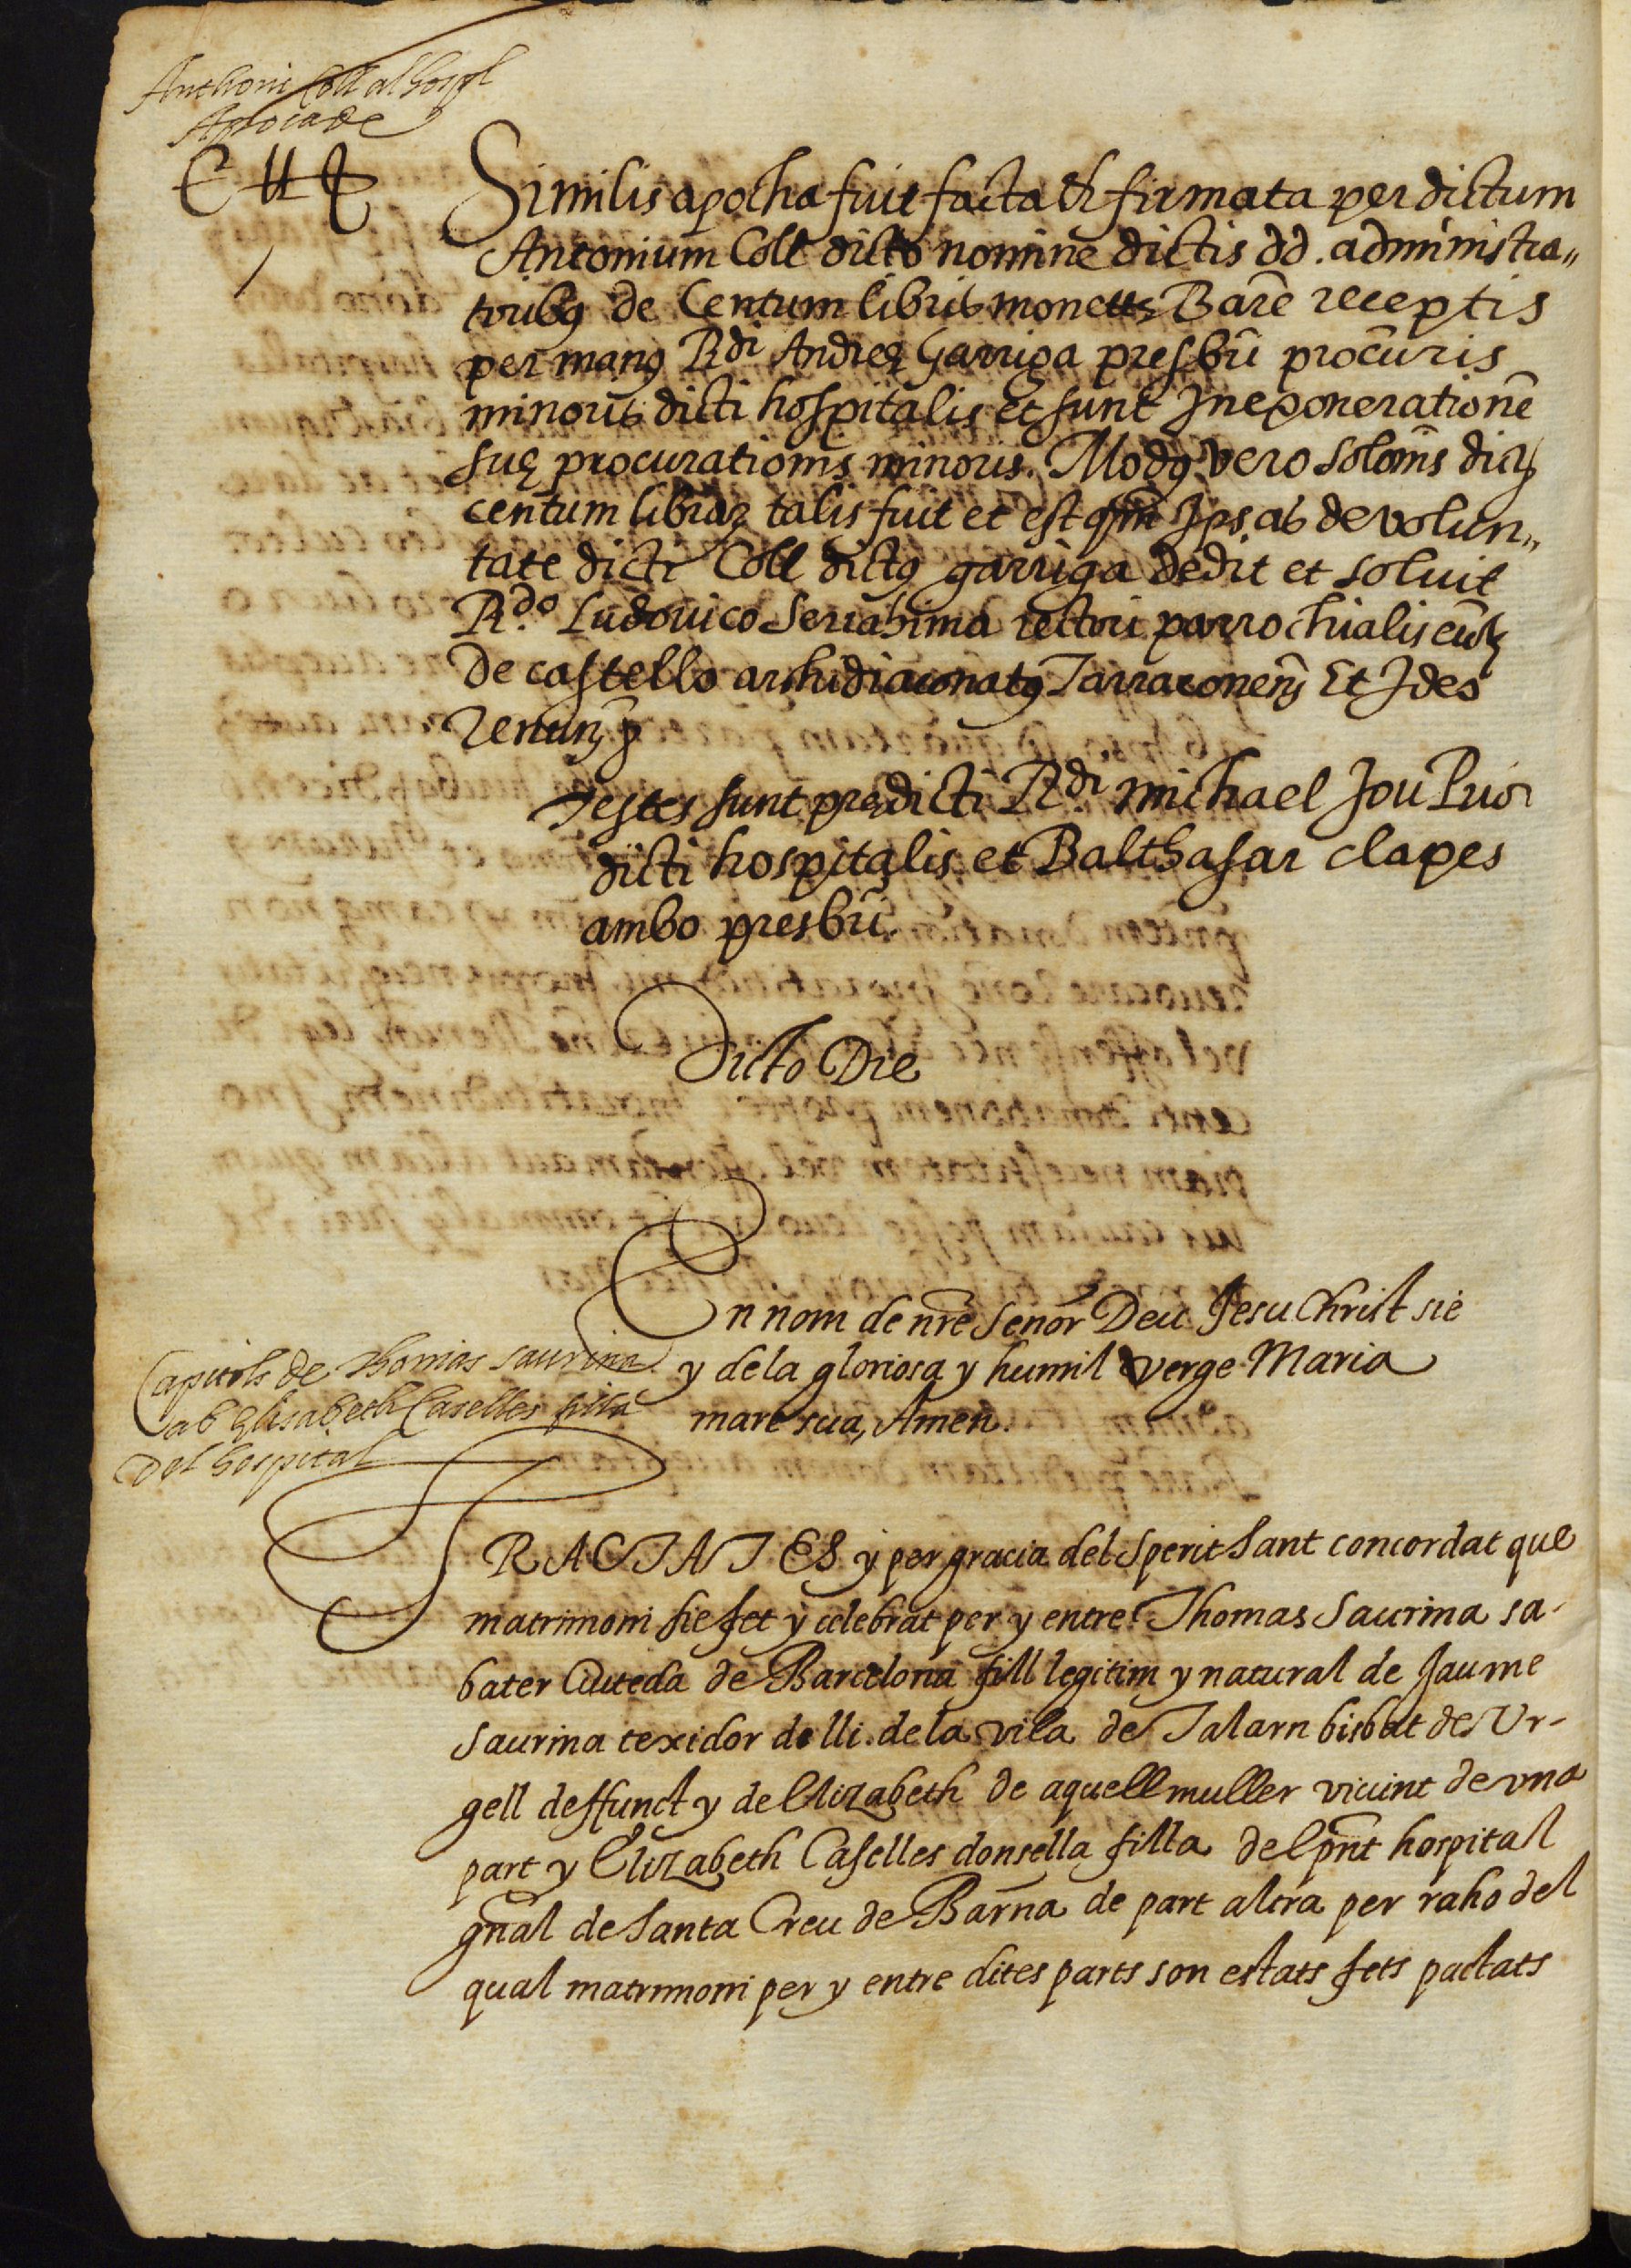 Anthoni Coll al hospl
Apoca de
C ll
Similis apocha fuit facta et firmata per dictum
Antonium Coll dicto nomine dictis dd. administra„
toribꝯ de Centum libris monete Barẽ receptis
per manꝯ Rdi Andreę Garriga presbrĩ procũris
minoris dicti hospitalis et sunt In exonerationẽ
suę procurationis minoris. Modꝯ vero solonĩs dictꝝ
centum librarꝝ talis fuit et est qm̃ Ipsas de volun„
tate dicti Coll dictꝯ garriga dedit et soluit
R.do Ludouico Serrahima rectori parrochialis
De castello archidiaconatꝯ Tarraconens̃ Et Ideo
Renun͂
Testes sunt prędicti Rdi michael Jou Prior
dicti hospitalis et Balthasar clapes
ambo presbrĩ.
Dicto Die
En nom de nrẽ Senor Deu Jesu Christ sie
y de la gloriosa y humil verge Maria
mare sua, Amen.
Capitols de Thomas saurina
ab Elisabeth Caselles filla
del hospital
TRACTAT ES y per gracia del sperit Sant concordat que
matrimoni sie fet y celebrat per y entre Thomas Saurina sa-
bater Ciuteda de Barcelona fill legitim y natural de Jaume
Saurina texidor de lli. de la vila de Talarn bisbat de Ur-
gell deffunct y de Elizabeth de aquell muller viuint de vna
part y Elizabeth Caselles donsella filla del pñt hospital
gñal de Santa Creu de Barña de part altra per raho del
qual matrimoni per y entre dites parts son estats fets pactats